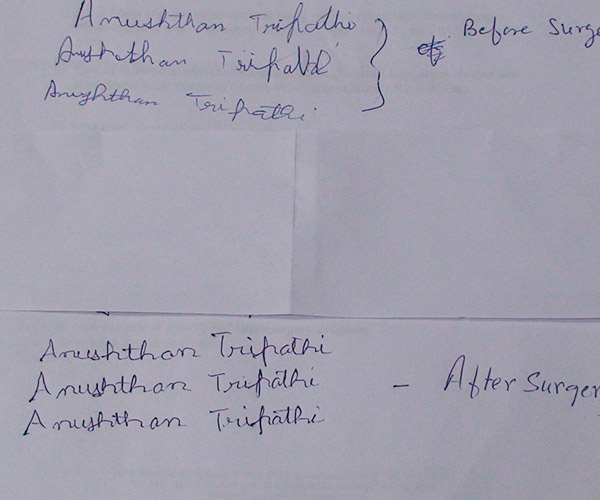 Anushthan Tripathi
Anushthan Tripathi
Anushthan Tripathi
Before Surge
Anushthan Tripathi
Anushthan Tripathi
Anushthan Tripathi
- After Surgery